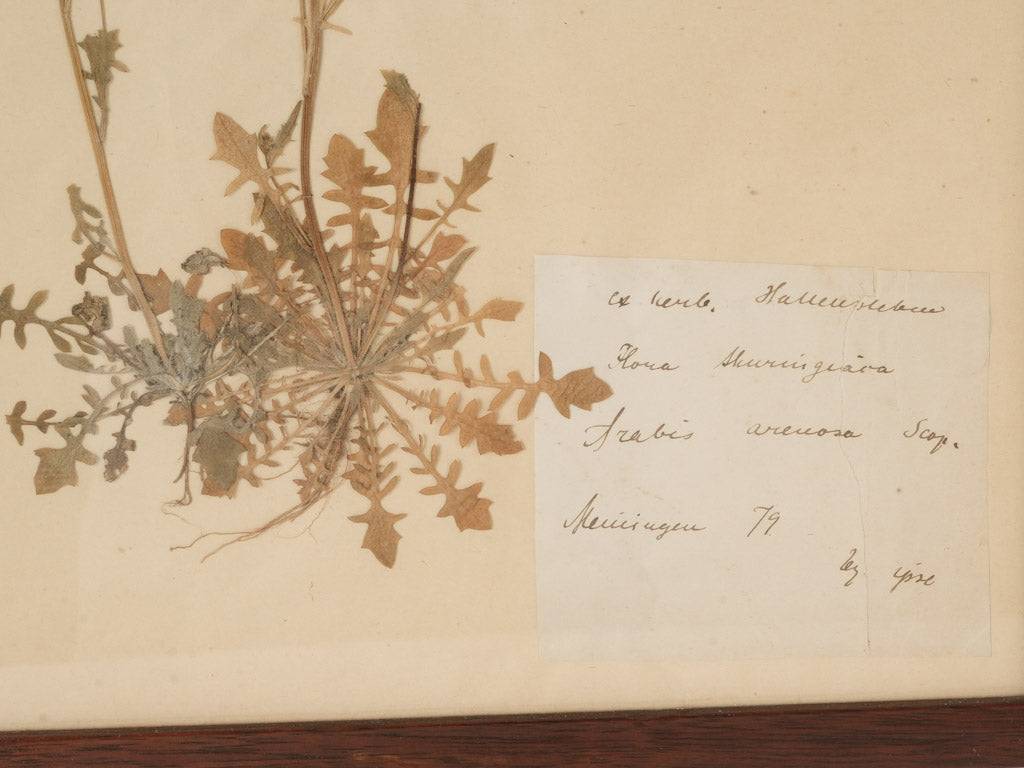 ex herb.
Flora thuringiaca
Arabis arenosa Scop.
Meiningen 79
ipse